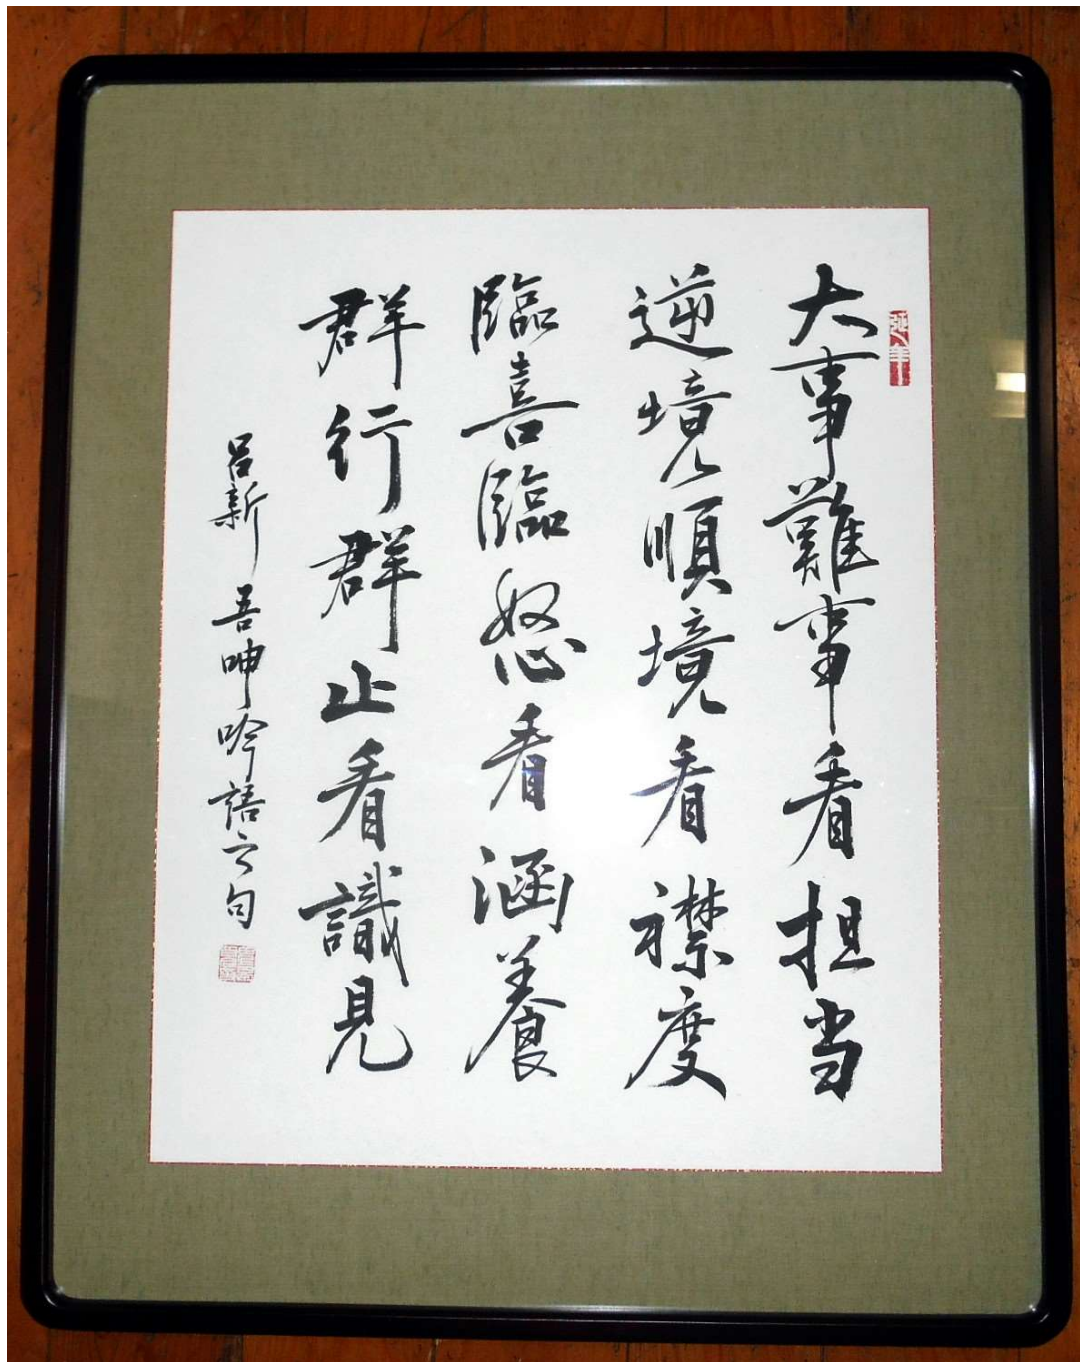 大事難事看担当
逆境順境看襟度
臨喜臨怒看涵養
群行群止看識見
呂新吾呻吟語之句
延年